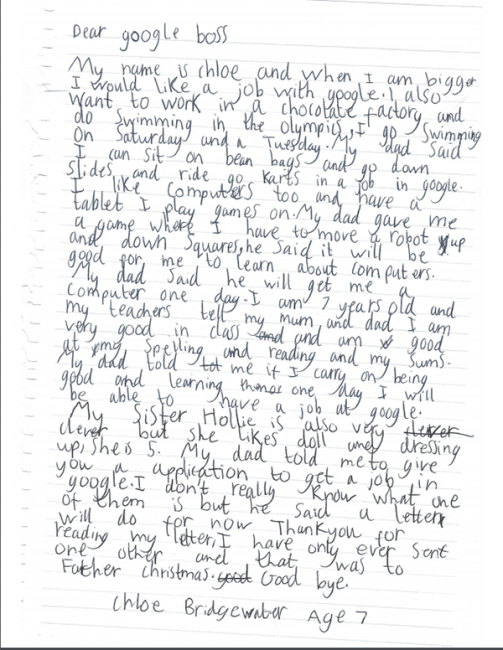 Dear google boss
My name is chloe and when I am bigger
I would like a job with google. I also
want to work in a chocolate factory and
do swimming in the olympics, I go swimming
on Saturday and a Tuesday. My dad said
I can sit on bean bags and go down
slides and ride go karts in a job in google.
I like computers too and have a
tablet I play games on. My dad gave me
a game where I have to move a robot up
and down squares, he said it will be
good for me to learn about computers.
My dad said he will get me a
computer one day. I am 7 years old and
my teachers tell my mum and dad I am
very good in class and am good
at my spelling and reading and my sums.
My dad told me if I carry on being
good and learning one day I will
be able to have a job at google.
My sister Hollie is also very
clever but she likes doll and dressing
up, she is 5. My dad told me to give
you a application to get a job in
google. I don't really know what one
of them is but he said a letter
will do for now Thankyou for
reading my letter, I have only ever sent
one other and that was to
Father christmas. good Good bye.
Chloe Bridgewater Age 7